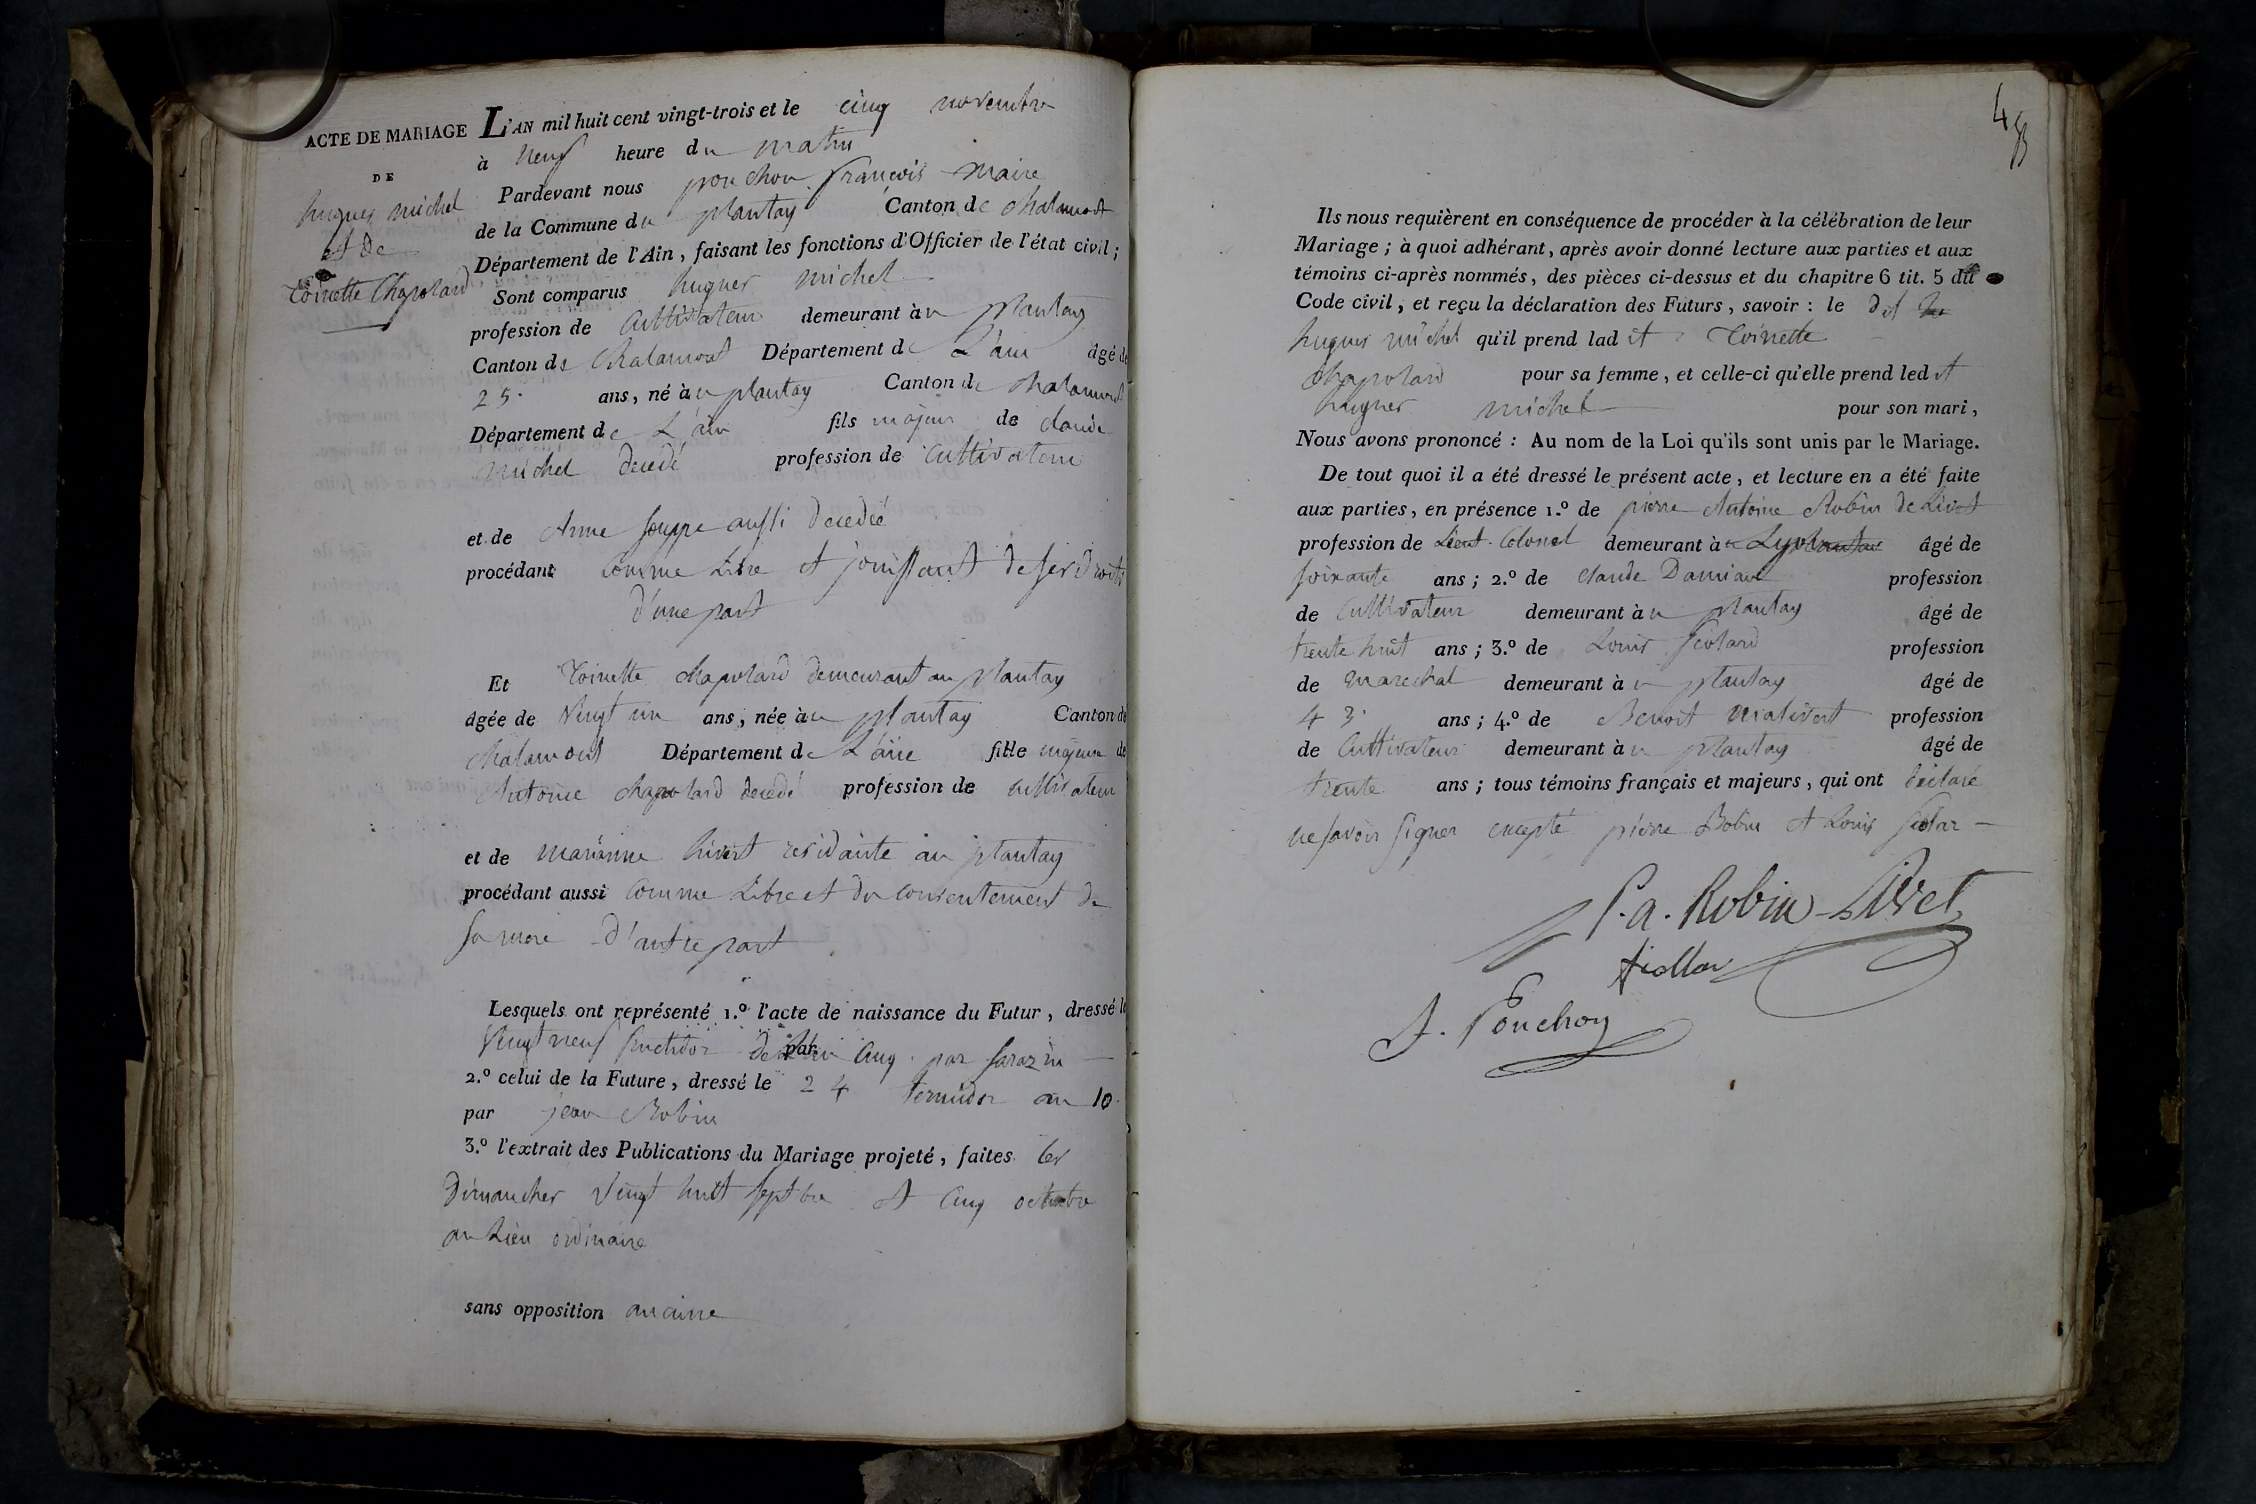 ACTE DE MARIAGE
DE
hugues michel
et de
Toinette Chapolard
L'AN mil huit cent vingt-trois et le cinq novembre
à neuf heure du matin
Pardevant nous pouchon françois maire
de la Commune du plantay Canton de chalamont
Département de l'Ain, faisant les fonctions d'Officier de l'état civil ;
Sont comparus hugues michel
profession de Cultivateur demeurant àu plantay
Canton de Chalamont Département de L'ain âgé de
25 ans, né àu plantay Canton de chalamont
Département de L'ain fils majeur de claude
michel decedé profession de Cultivateur
et de Anne aussi decedée
procédant comme Libre et jouissant de ses droits
d'une part
Et Toinette chapolard demeurant au plantay
âgée de Vingt un ans, née àu plantay Canton de
chalamont Département de L'ain fille majeure de
Antoine chapolard decedé profession de cultivateur
et de marianne residante au plantay
procédant aussi comme Libre et du consentement de
sa mere d'autre part
Lesquels ont représenté 1.º l'acte de naissance du Futur, dressé le
Vingt neuf fructidor de par cinq par sarazin
2.º celui de la Future, dressé le 24 termidor an 10
par jean Robin
3.º l'extrait des Publications du Mariage projeté, faites les
Dimanches Vingt huit septbre et cinq octobre
au Lieu ordinaire
sans opposition aucune
4
Ils nous requièrent en conséquence de procéder à la célébration de leur
Mariage ; à quoi adhérant, après avoir donné lecture aux parties et aux
témoins ci-après nommés, des pièces ci-dessus et du chapitre 6 tit. 5 du
Code civil, et reçu la déclaration des Futurs, savoir : le dit
hugues michel qu'il prend lad it Toinette
chapolard pour sa femme, et celle-ci qu'elle prend led it
hugues michel pour son mari,
Nous avons prononcé : Au nom de la Loi qu'ils sont unis par le Mariage.
De tout quoi il a été dressé le présent acte, et lecture en a été faite
aux parties, en présence 1.º de pierre Antoine Robin de Livet
profession de Lieut. Colonel demeurant à âgé de
soixante ans ; 2.º de claude Damian profession
de Cultivateur demeurant àu plantay âgé de
trente huit ans ; 3.º de Louis profession
de marechal demeurant àu plantay âgé de
43 ans ; 4.º de Benoit profession
de Cultivateur demeurant àu plantay âgé de
trente ans ; tous témoins français et majeurs, qui ont declaré
ne savoir signer excepté pierre Robin et Louis
P. a. Robin Livet
f. Pouchon